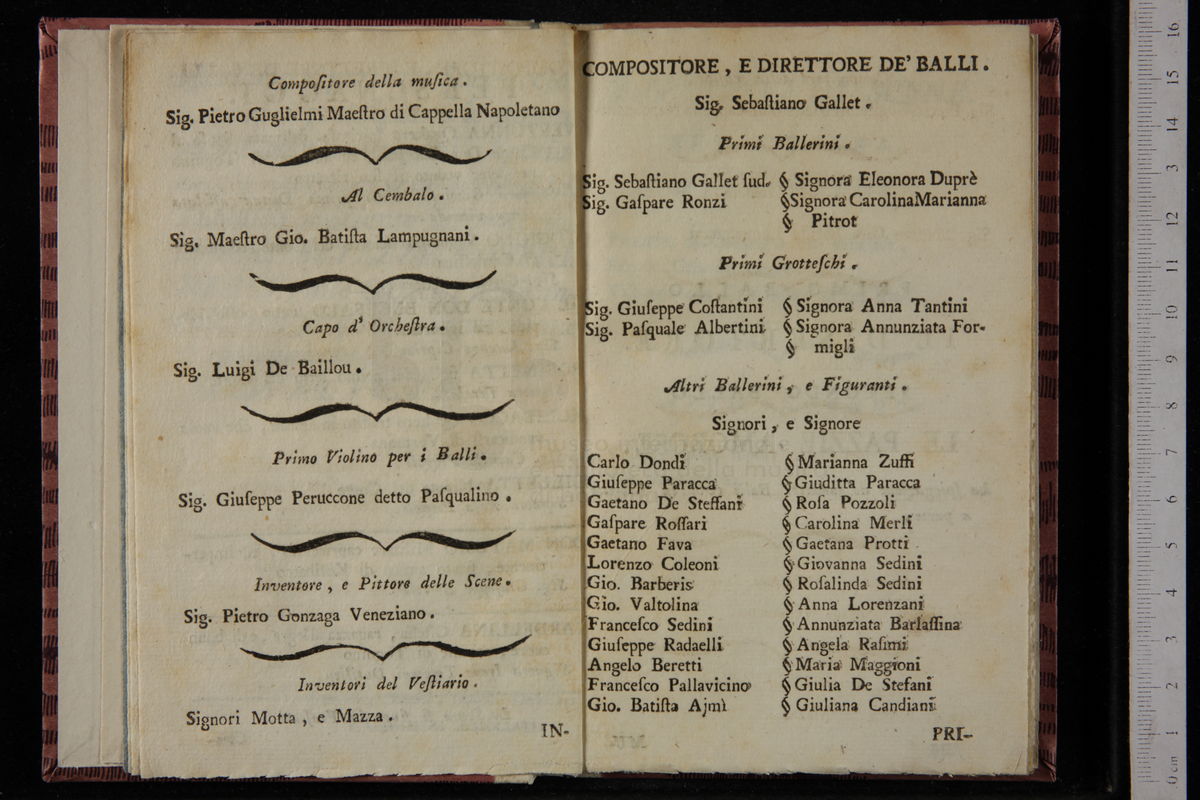 Compoſitore della muſica.
Sig. Pietro Guglielmi Maeſtro di Cappella Napoletano
Al Cembalo.
Sig. Maeſtro Gio. Batiſta Lampugnani.
Capo d' Orcheſtra.
Sig. Luigi De Baillou.
Primo Violino per i Balli.
Sig. Giuſeppe Peruccone detto Paſqualino.
Inventore, e Pittore delle Scene.
Sig. Pietro Gonzaga Veneziano.
Inventori del Veſtiario.
Signori Motta, e Mazza.
IN-
COMPOSITORE, E DIRETTORE DE' BALLI.
Sig. Sebaſtiano Gallet.
Primi Ballerini.
Sig. Sebaſtiano Gallet ſud. § Signora Eleonora Duprè
Sig. Gaſpare Ronzi § Signora Carolina Marianna
§ Pitrot
Primi Grotteſchi.
Sig. Giuſeppe Coſtantini § Signora Anna Tantini
Sig. Paſquale Albertini § Signora Annunziata For-
§ migli
Altri Ballerini, e Figuranti.
Signori, e Signore
Carlo Dondi § Marianna Zuffi
Giuſeppe Paracca § Giuditta Paracca
Gaetano De Steffani § Roſa Pozzoli
Gaſpare Roſſari § Carolina Merli
Gaetano Fava § Gaetana Protti
Lorenzo Coleoni § Giovanna Sedini
Gio. Barberis § Roſalinda Sedini
Gio. Valtolina § Anna Lorenzani
Franceſco Sedini § Annunziata Barlaſſina
Giuſeppe Radaelli § Angela Raſimi
Angelo Beretti § Maria Maggioni
Franceſco Pallavicino § Giulia De Stefani
Gio. Batiſta Ajmì § Giuliana Candiani
PRI-
0 cm 1 2 3 4 5 6 7 8 9 10 11 12 13 14 15 16